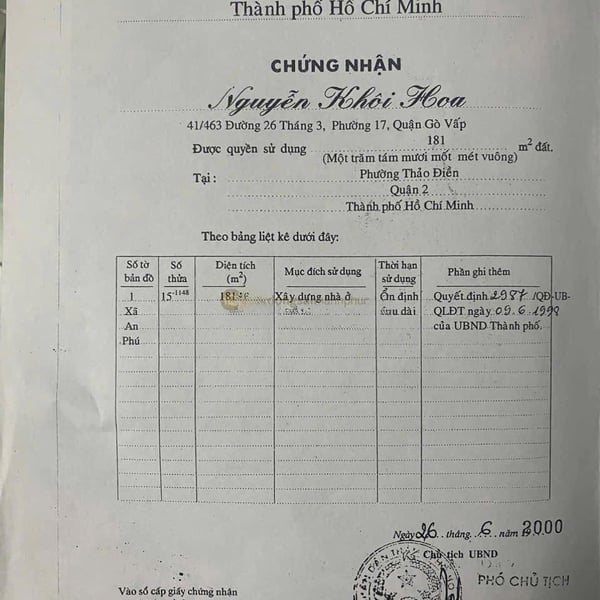 Thành phố Hồ Chí Minh
CHỨNG NHẬN
Nguyễn Khôi Hoa
41/463 Đường 26 Tháng 3, Phường 17, Quận Gò Vấp
Được quyền sử dụng 181 m² đất.
(Một trăm tám mươi mốt mét vuông)
Tại: Phường Thảo Điền
Quận 2
Thành phố Hồ Chí Minh
Theo bảng liệt kê dưới đây:
Số tờ bản đồ Số thửa Diện tích (m²) Mục đích sử dụng Thời hạn sử dụng Phần ghi thêm
1 15-1148 181 Xây dựng nhà ở Ổn định Quyết định 2987/QĐ-UB-
Xã lâu dài QLĐT ngày 09.6.1999
An của UBND Thành phố.
Phú
Ngày 26 tháng 6 năm 2000
Chủ tịch UBND
PHÓ CHỦ TỊCH
Vào sổ cấp giấy chứng nhận